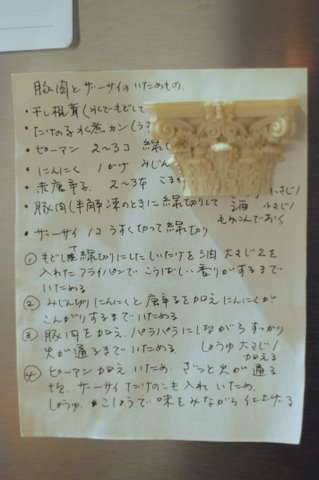 豚肉とザーサイのいためもの.
・干し椎茸(水でもどして
・たけの子水煮カン(うす
・ピーマン 2〜3コ 線
・にんにく 1かけ みじん
・赤唐辛子 2〜3本 こま
・豚肉(半解凍のときに線切りして 酒 小さじ1
もみこんでおく
・ザーサイ 1コ うすく切って線切り
① もどして線切りにしたしいたけを油大さじ2を
入れたフライパンでこうばしい香りがするまで
いためる
② みじん切りにんにくと唐辛子を加えにんにくが
こんがりするまでいためる
③ 豚肉を加え、パラパラにしながらすっかり
火が通るまでいためる. しょうゆ大さじ1
加える
④ ピーマン加えいため、ざっと火が通る
ザーサイたけのこも入れいため、
しょうゆ、こしょうで味をみながら仕上げる